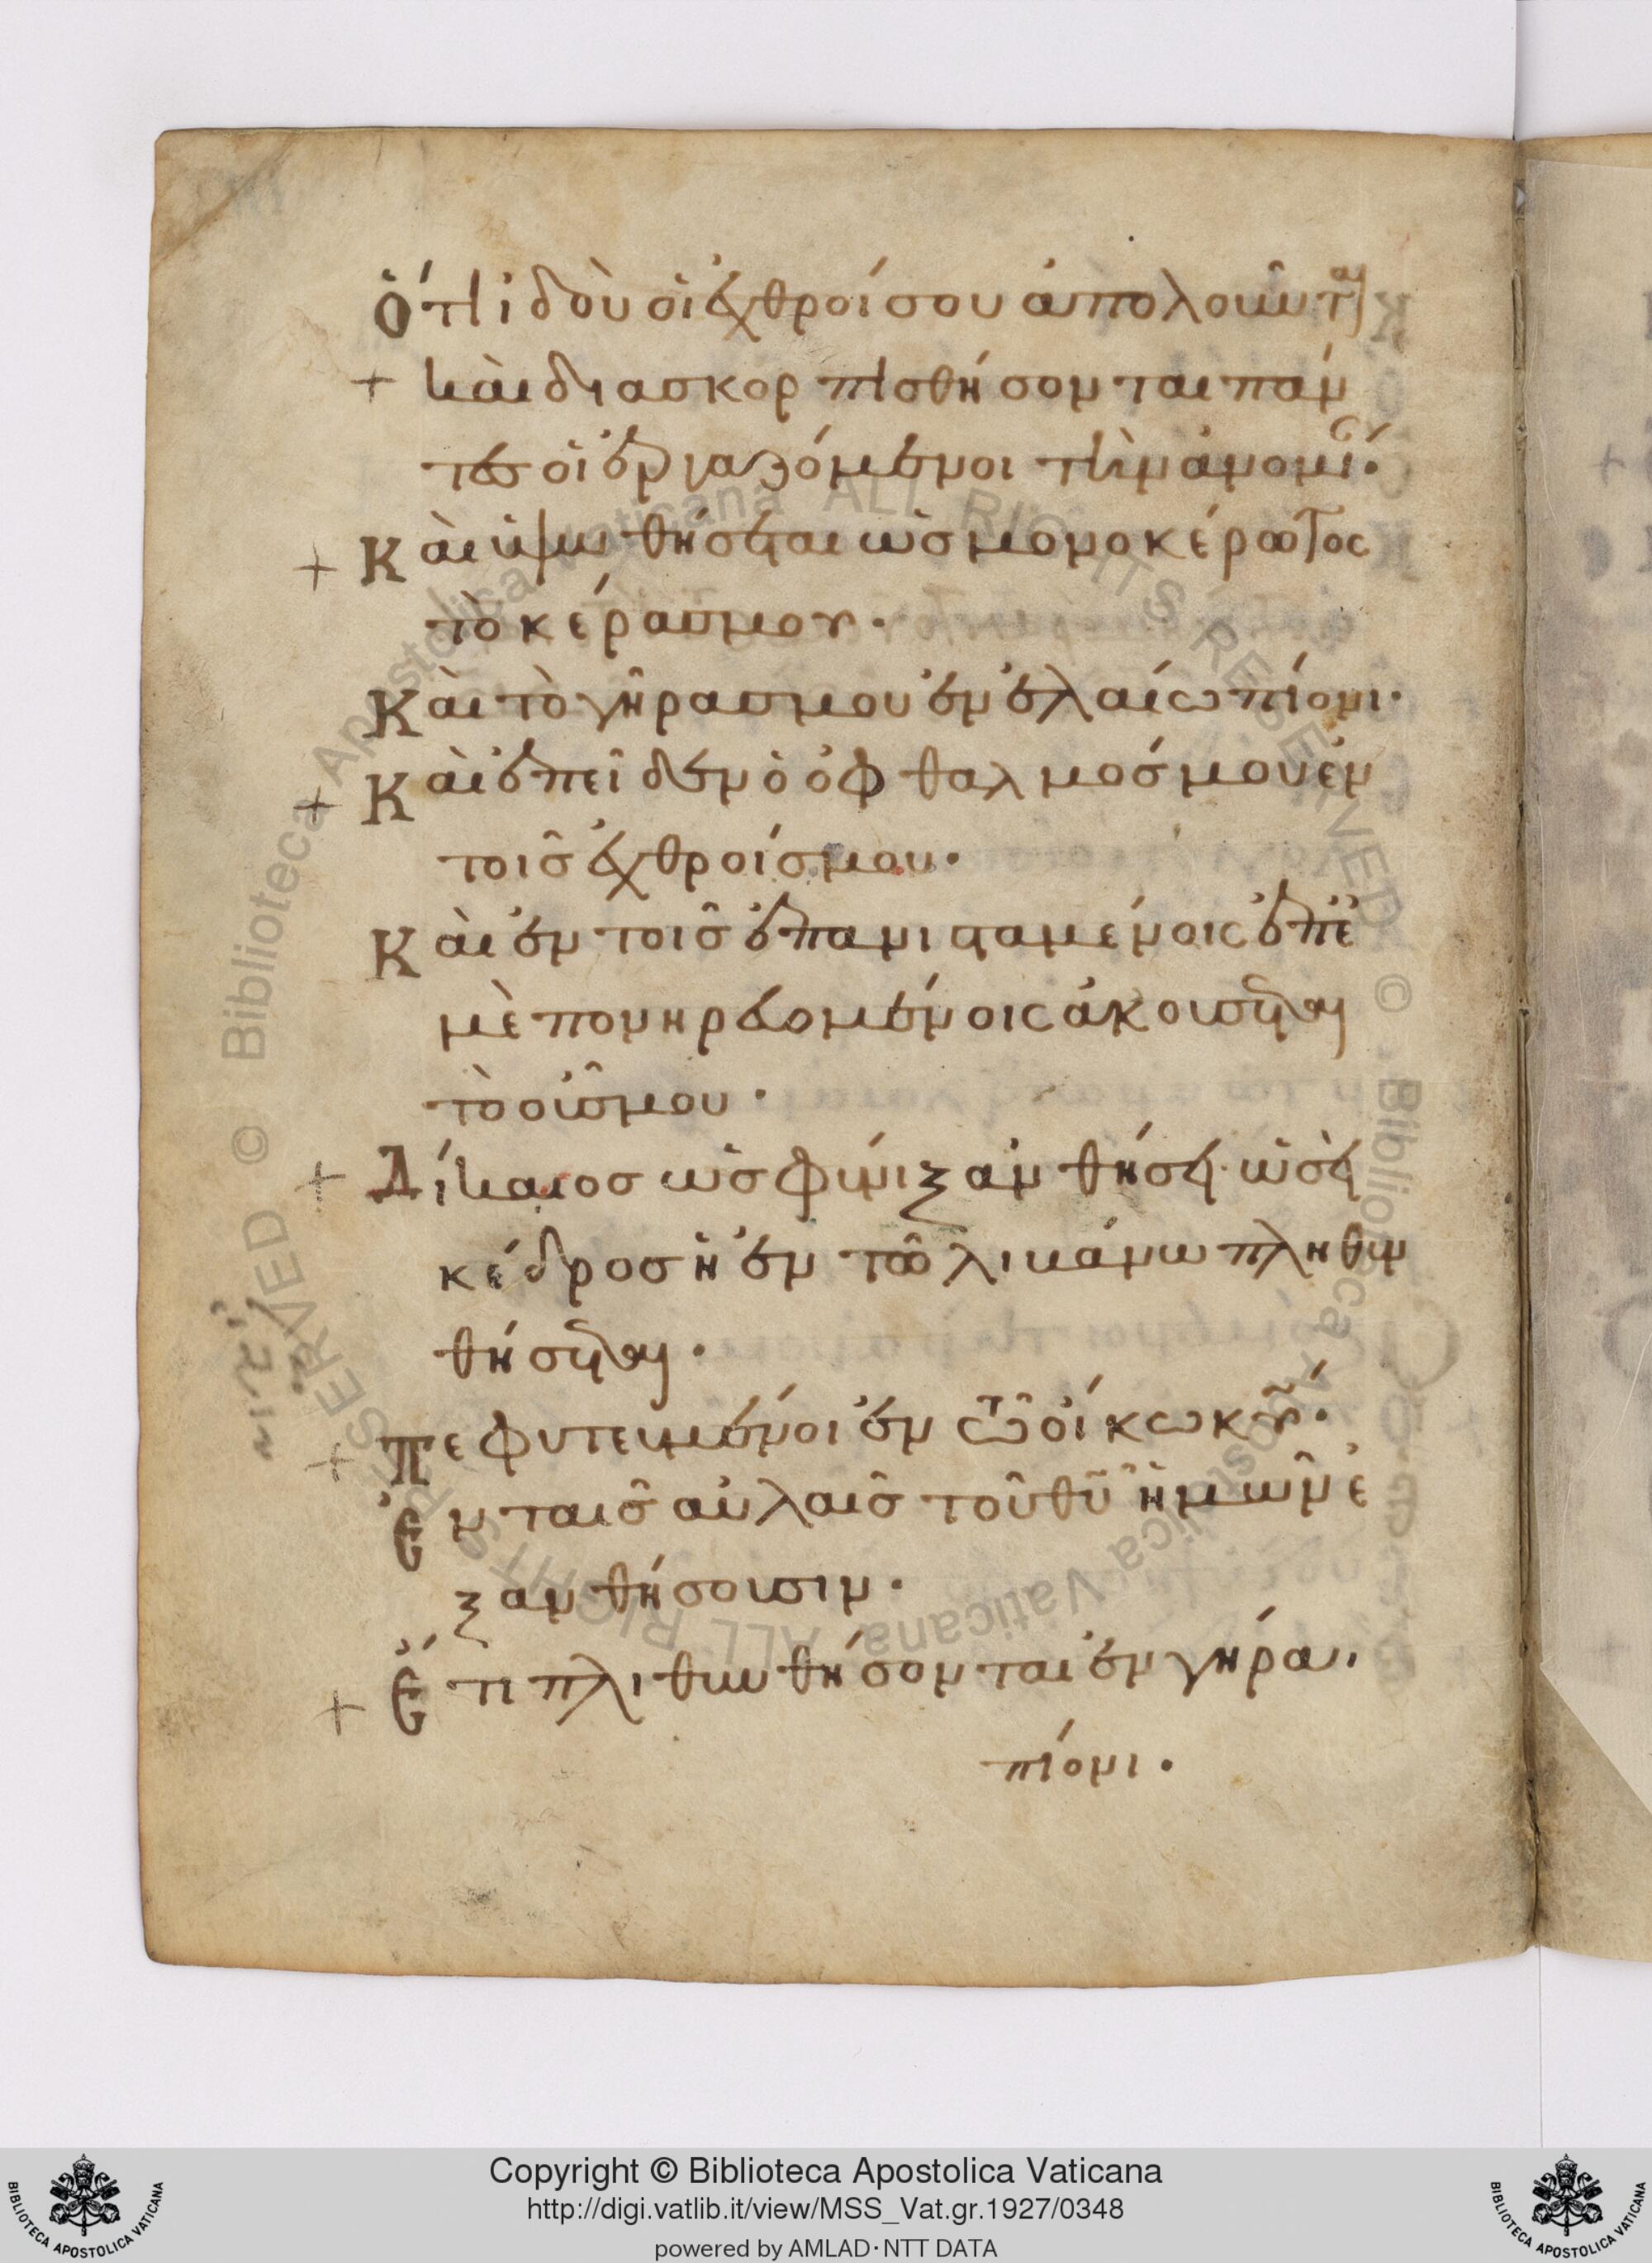 Ὅτι ἰδοὺ οἱ ἐχθροί σου ἀπολοῦνται
+ καὶ διασκορπισθήσονται πάν
τες οἱ ἐργαζόμενοι τὴν ἀνομί.
+ Καὶ ὑψωθήσεται ὡς μονοκέρωτος
τὸ κέρας μου.
Καὶ τὸ γῆρας μου ἐν ἐλαίω πίονι.
+ Καὶ ἐπεῖδεν ὁ ὀφθαλμόσ μου ἐν
τοῖσ ἐχθροίσ μου.
Καὶ ἐν τοῖσ ἐπανισταμένοις ἐπἐ
μὲ πονηρευομένοις ἀκούσεται
τὸ οὖσ μου.
+ Δίκαιοσ ὡσ φοίνιξ ἀνθήσει. ὡσεὶ
κέδροσ ἡ ἐν τῶ λιβάνω πληθυν
θήσεται.
+ Πεφυτευμένοι ἐν τῶ οἴκω κυ̅.
Ἐν ταῖσ αὐλαῖσ τοῦ θυ̅ ἡμῶν ἐ
ξανθήσουσιν.
+ Ἔτι πλιθυνθήσονται ἐν γήρει
πίονι.
Copyright © Biblioteca Apostolica Vaticana
http://digi.vatlib.it/view/MSS_Vat.gr.1927/0348
powered by AMLAD·NTT DATA
BIBLIOTECA APOSTOLICA VATICANA
BIBLIOTECA APOSTOLICA VATICANA
© Biblioteca Apostolica Vaticana ALL RIGHTS RESERVED
© Biblioteca Apostolica Vaticana ALL RIGHTS RESERVED